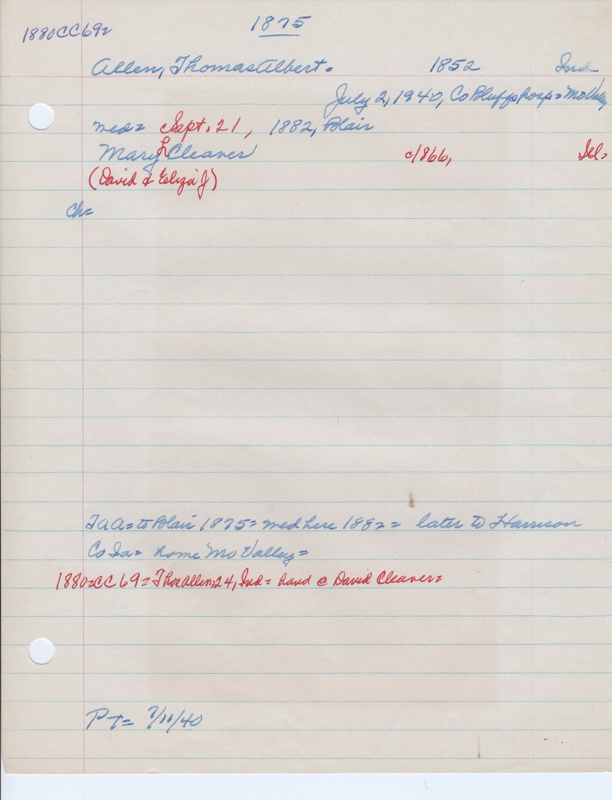 1875
1880CC69z
Allen, Thomas Albert. 1852 Ind
July 2, 1940, Co Bluffs hosp = Mo Valley
med = Sept. 21, 1882, Blair
Mary L Cleaver c1866, Ill.
(David & Eliza J)
Ch =
TAA = to Blair 1875 = med here 1882 = later to Harrison
Co Ia = home Mo Valley =
1880 = CC69 = Thos Allen, 24, Ind = hand @ David Cleaver =
PT = 7/11/40